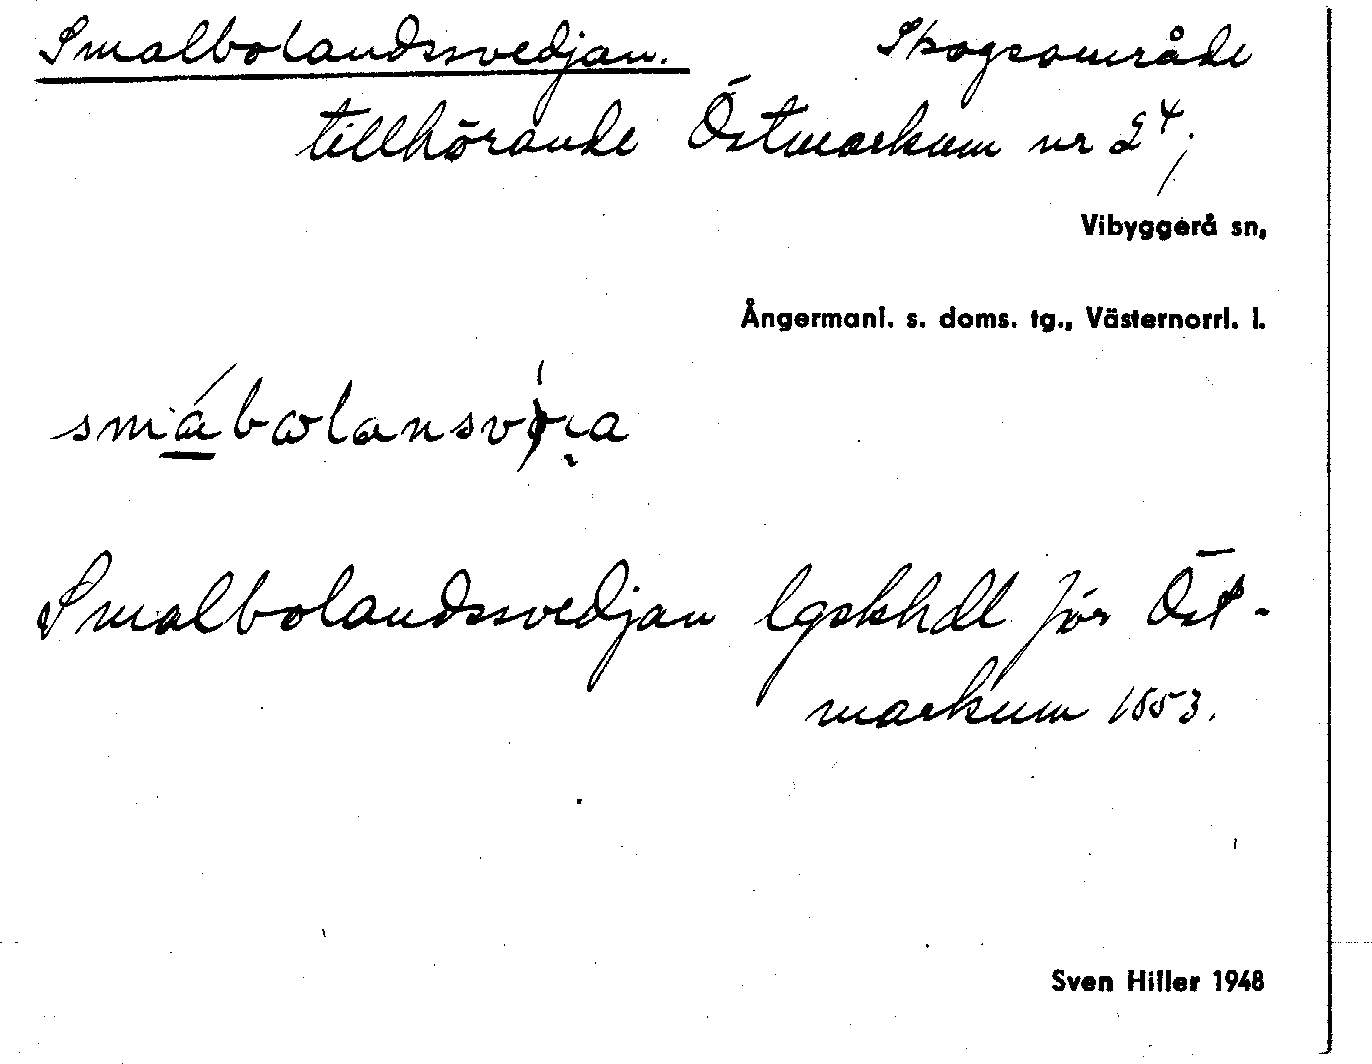 Smalbolandssvedjan. Skogsområde
tillhörande Östmarkum nr 2⁴;
Vibyggerå sn,
Ångermanl. s. doms. tg., Västernorrl. l.
Smalbolandssvedjan lgskhdl för Öst-
markum 1853.
Sven Hiller 1948